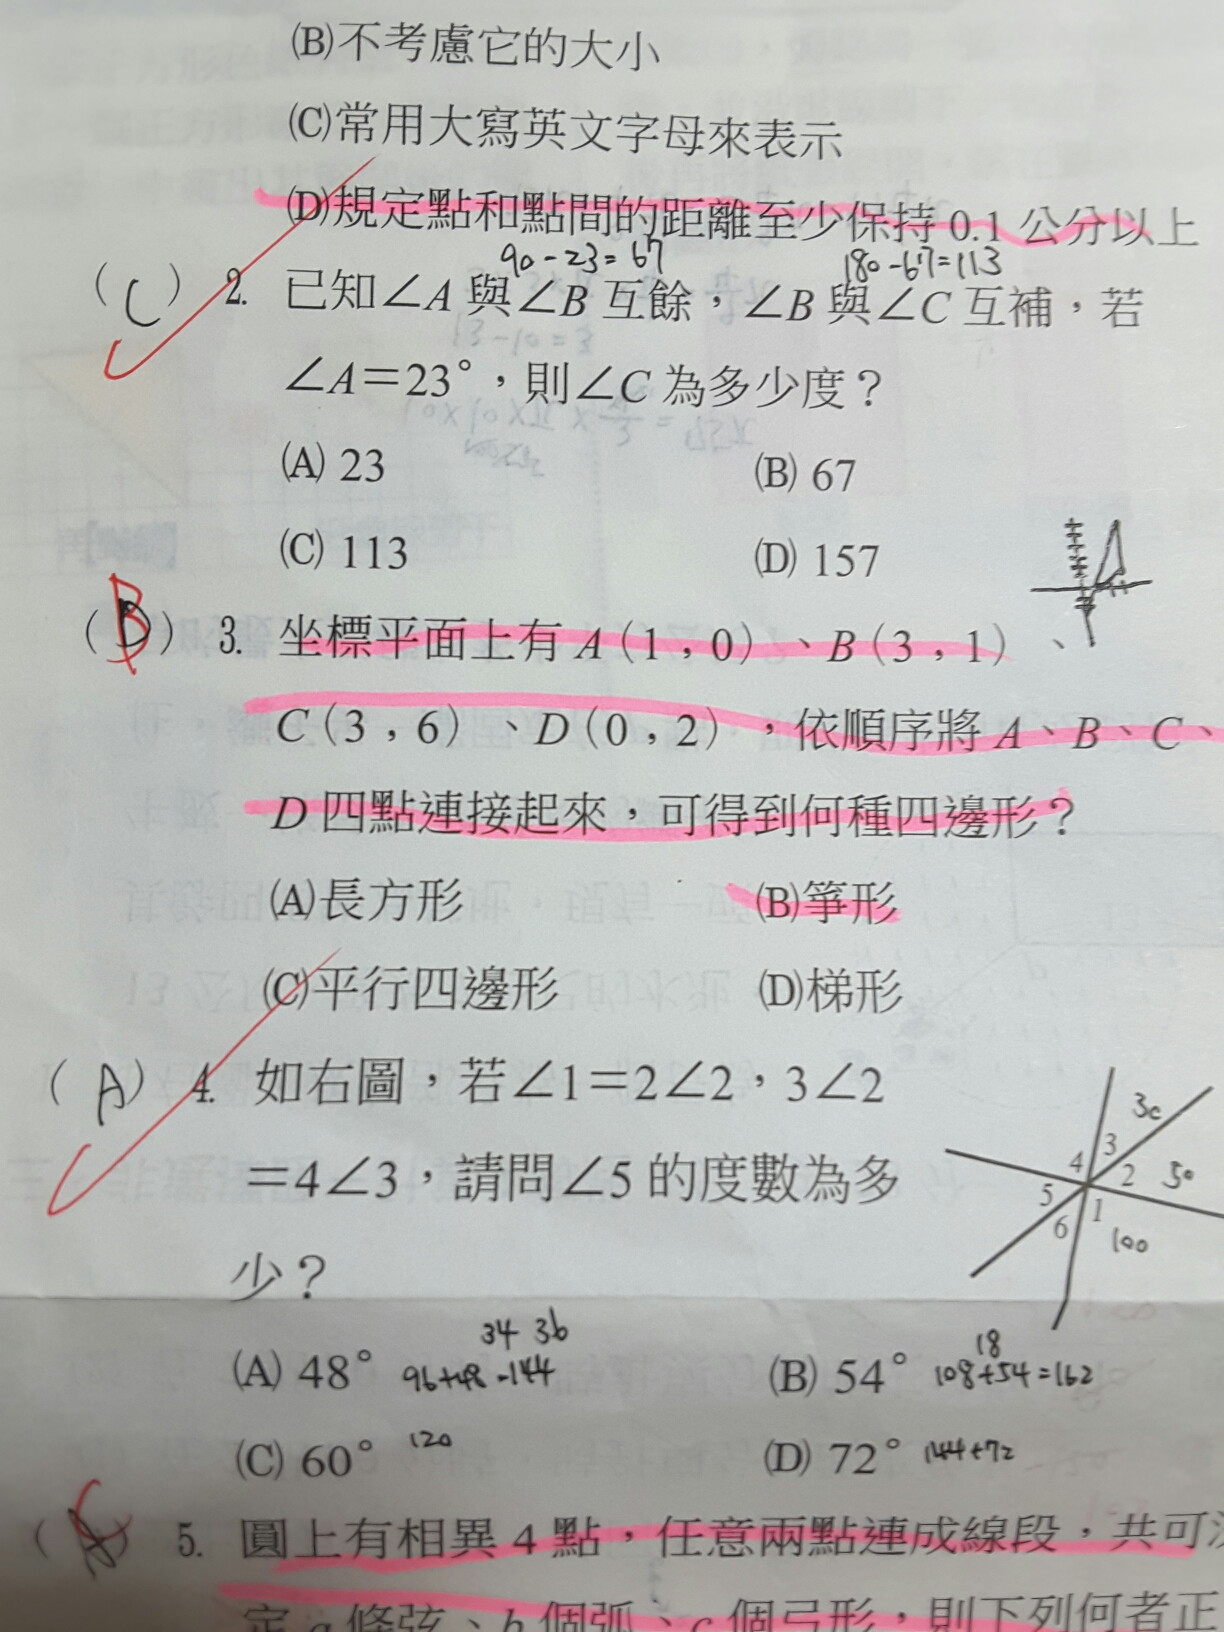 (B)不考慮它的大小
(C)常用大寫英文字母來表示
(D)規定點和點間的距離至少保持 0.1 公分以上
90-23=67 180-67=113
(C) 2. 已知∠A 與∠B 互餘,∠B 與∠C 互補,若
∠A=23°,則∠C 為多少度?
(A) 23 (B) 67
(C) 113 (D) 157
(B) 3. 坐標平面上有 A(1,0)、B(3,1)、
C(3,6)、D(0,2),依順序將 A、B、C、
D 四點連接起來,可得到何種四邊形?
(A)長方形 (B)箏形
(C)平行四邊形 (D)梯形
(A) 4. 如右圖,若∠1=2∠2,3∠2
=4∠3,請問∠5 的度數為多
少?
3 2 1 4 5 6
100
34 36
(A) 48° 96+48=144
18
(B) 54° 108+54=162
(C) 60° 120 (D) 72° 144+72
5. 圓上有相異 4 點,任意兩點連成線段,共可
定 a 條弦、b 個弧、c 個弓形,則下列何者正